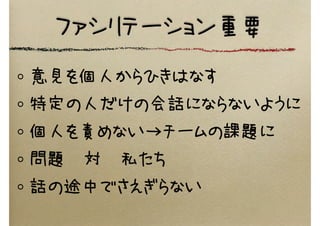 ファシリテーション重要
意見を個人からひきはなす
特定の人だけの会話にならないように
個人を責めない→チームの課題に
問題 対 私たち
話の途中でさえぎらない